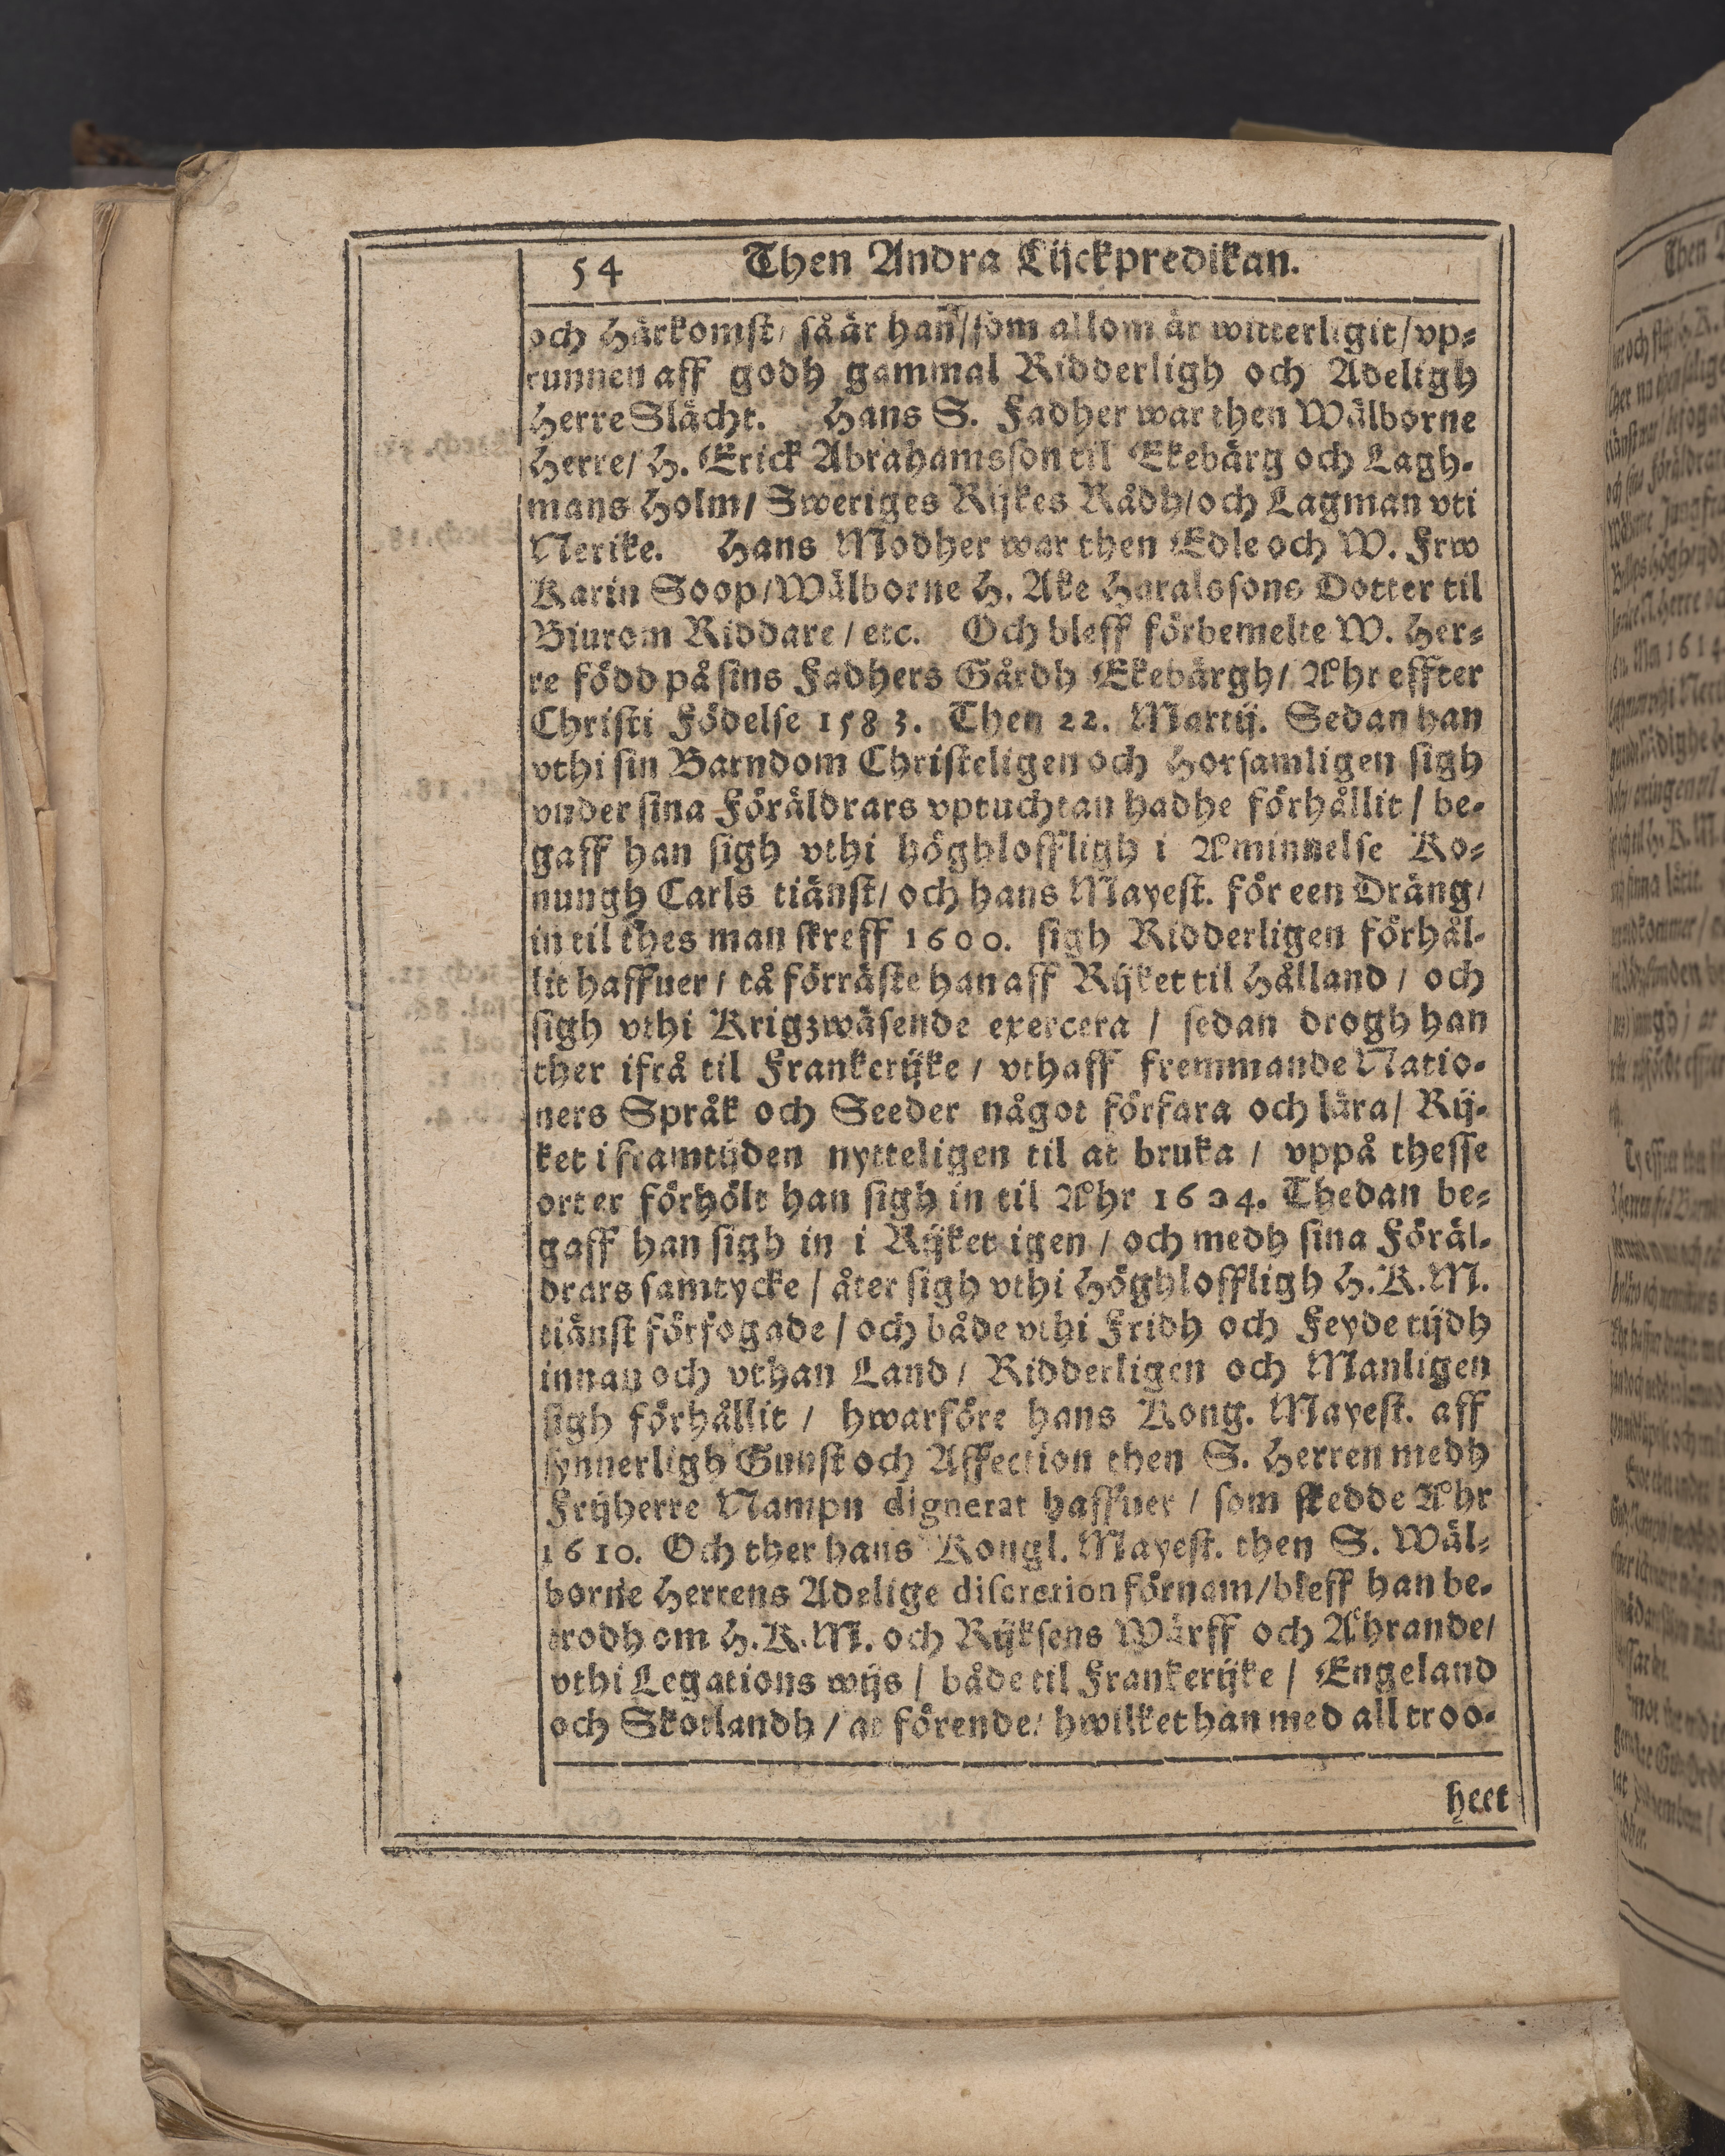 54 Then Andra Lijckpredikan.
och Härkomst/ så är han/ som allom är witterligit/ vp=
runnen aff godh gammal Ridderligh och Adeligh
Herre Slächt. Hans S. Fadher war then Wälborne
Herre/ H. Erick Abrahamsson til Ekebärg och Lagh=
mans Holm/ Sweriges Rijkes Rådh/ och Lagman vti
Nerike. Hans Modher war then Edle och W. Frw
Karin Soop/ Wälborne H. Ake Haralssons Dotter til
Biurom Riddare / etc. Och bleff förbemelte W. Her=
re född på sins Fadhers Gårdh Ekebärgh/ Åhr effter
Christi Födelse 1583. Then 22. Martij. Sedan han
vthi sin Barndom Christeligen och Horsamligen sigh
vnder sina Föräldrars vptuchtan hadhe förhållit / be=
gaff han sigh vthi höghloffligh i Åminnelse Ko=
nungh Carls tiänst/ och hans Mayest. för een Dräng/
in til thes man skreff 1600. sigh Ridderligen förhål=
lit haffuer / tå förräste han aff Rijket til Hålland / och
sigh vthi Krigzwäsende exercera / sedan drogh han
ther ifrå til Frankerijke / vthaff fremmande Natio=
ners Språk och Seeder något förfara och lära/ Rij=
ket i framtijden nytteligen til at bruka / vppå thesse
orter förhölt han sigh in til Åhr 1604. Thedan be=
gaff han sigh in i Rijket igen / och medh sina Föräl=
drars samtycke / åter sigh vthi Höghloffligh H.K.M.
tiänst förfogade / och både vthi Fridh och Feyde tijdh
innan och vthan Land / Ridderligen och Manligen
sigh förhållit / hwarföre hans Kong. Mayest. aff
synnerligh Gunst och Affection then S. Herren medh
Frijherre Nampn dignerat haffuer / som skedde Åhr
1610. Och ther hans Kongl. Mayest. then S. Wäl=
borne Herrens Adelige discretion förnam/ bleff han be=
trodh om H.K.M. och Rijksens Wärff och Ährande/
vthi Legations wijs / både til Frankerijke / Engeland
och Skotlandh / at förende/ hwilket han med all troo=
heet